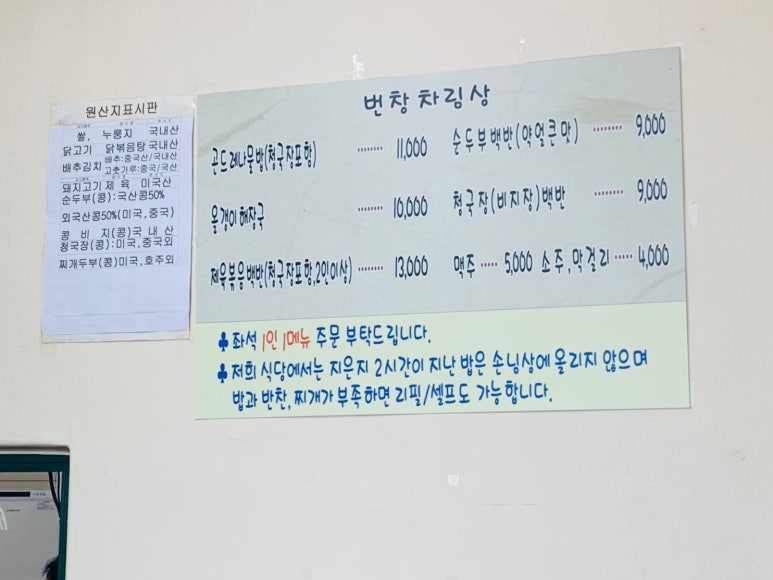 원산지표시판
쌀, 누룽지 국내산
닭고기 닭볶음탕 국내산
배추김치 배추:중국산/국내산
고춧가루:중국/국산
돼지고기 제육 미국산
순두부(콩):국산콩50%
외국산콩50%(미국,중국)
콩비지(콩)국내산
청국장(콩):미국,중국외
찌개두부(콩)미국,호주외
번창차림상
곤드레나물밥(청국장포함) 11,000
올갱이해장국 10,000
제육볶음백반(청국장포함,2인이상) 13,000
순두부백반(약얼큰맛) 9,000
청국장(비지장)백반 9,000
맥주 5,000 소주,막걸리 4,000
♣좌석 1인 1메뉴 주문 부탁드립니다.
♣저희 식당에서는 지은지 2시간이 지난 밥은 손님상에 올리지 않으며
밥과 반찬, 찌개가 부족하면 리필/셀프도 가능합니다.